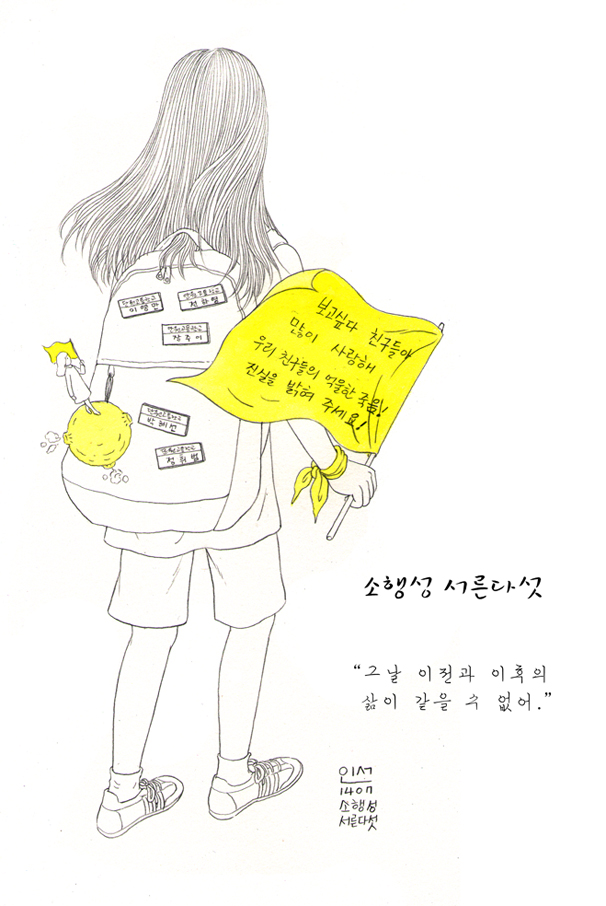 단원고등학교
이맹안
단원고등학교
전하영
단원고등학교
장주이
단원고등학교
박혜선
단원고등학교
정휘범
보고싶다 친구들아
많이 사랑해
우리 친구들의 억울한 죽음!
진실을 밝혀 주세요!
소행성 서른다섯
“그날 이전과 이후의
삶이 같을 수 없어.”
인서
1407
소행성
서른다섯